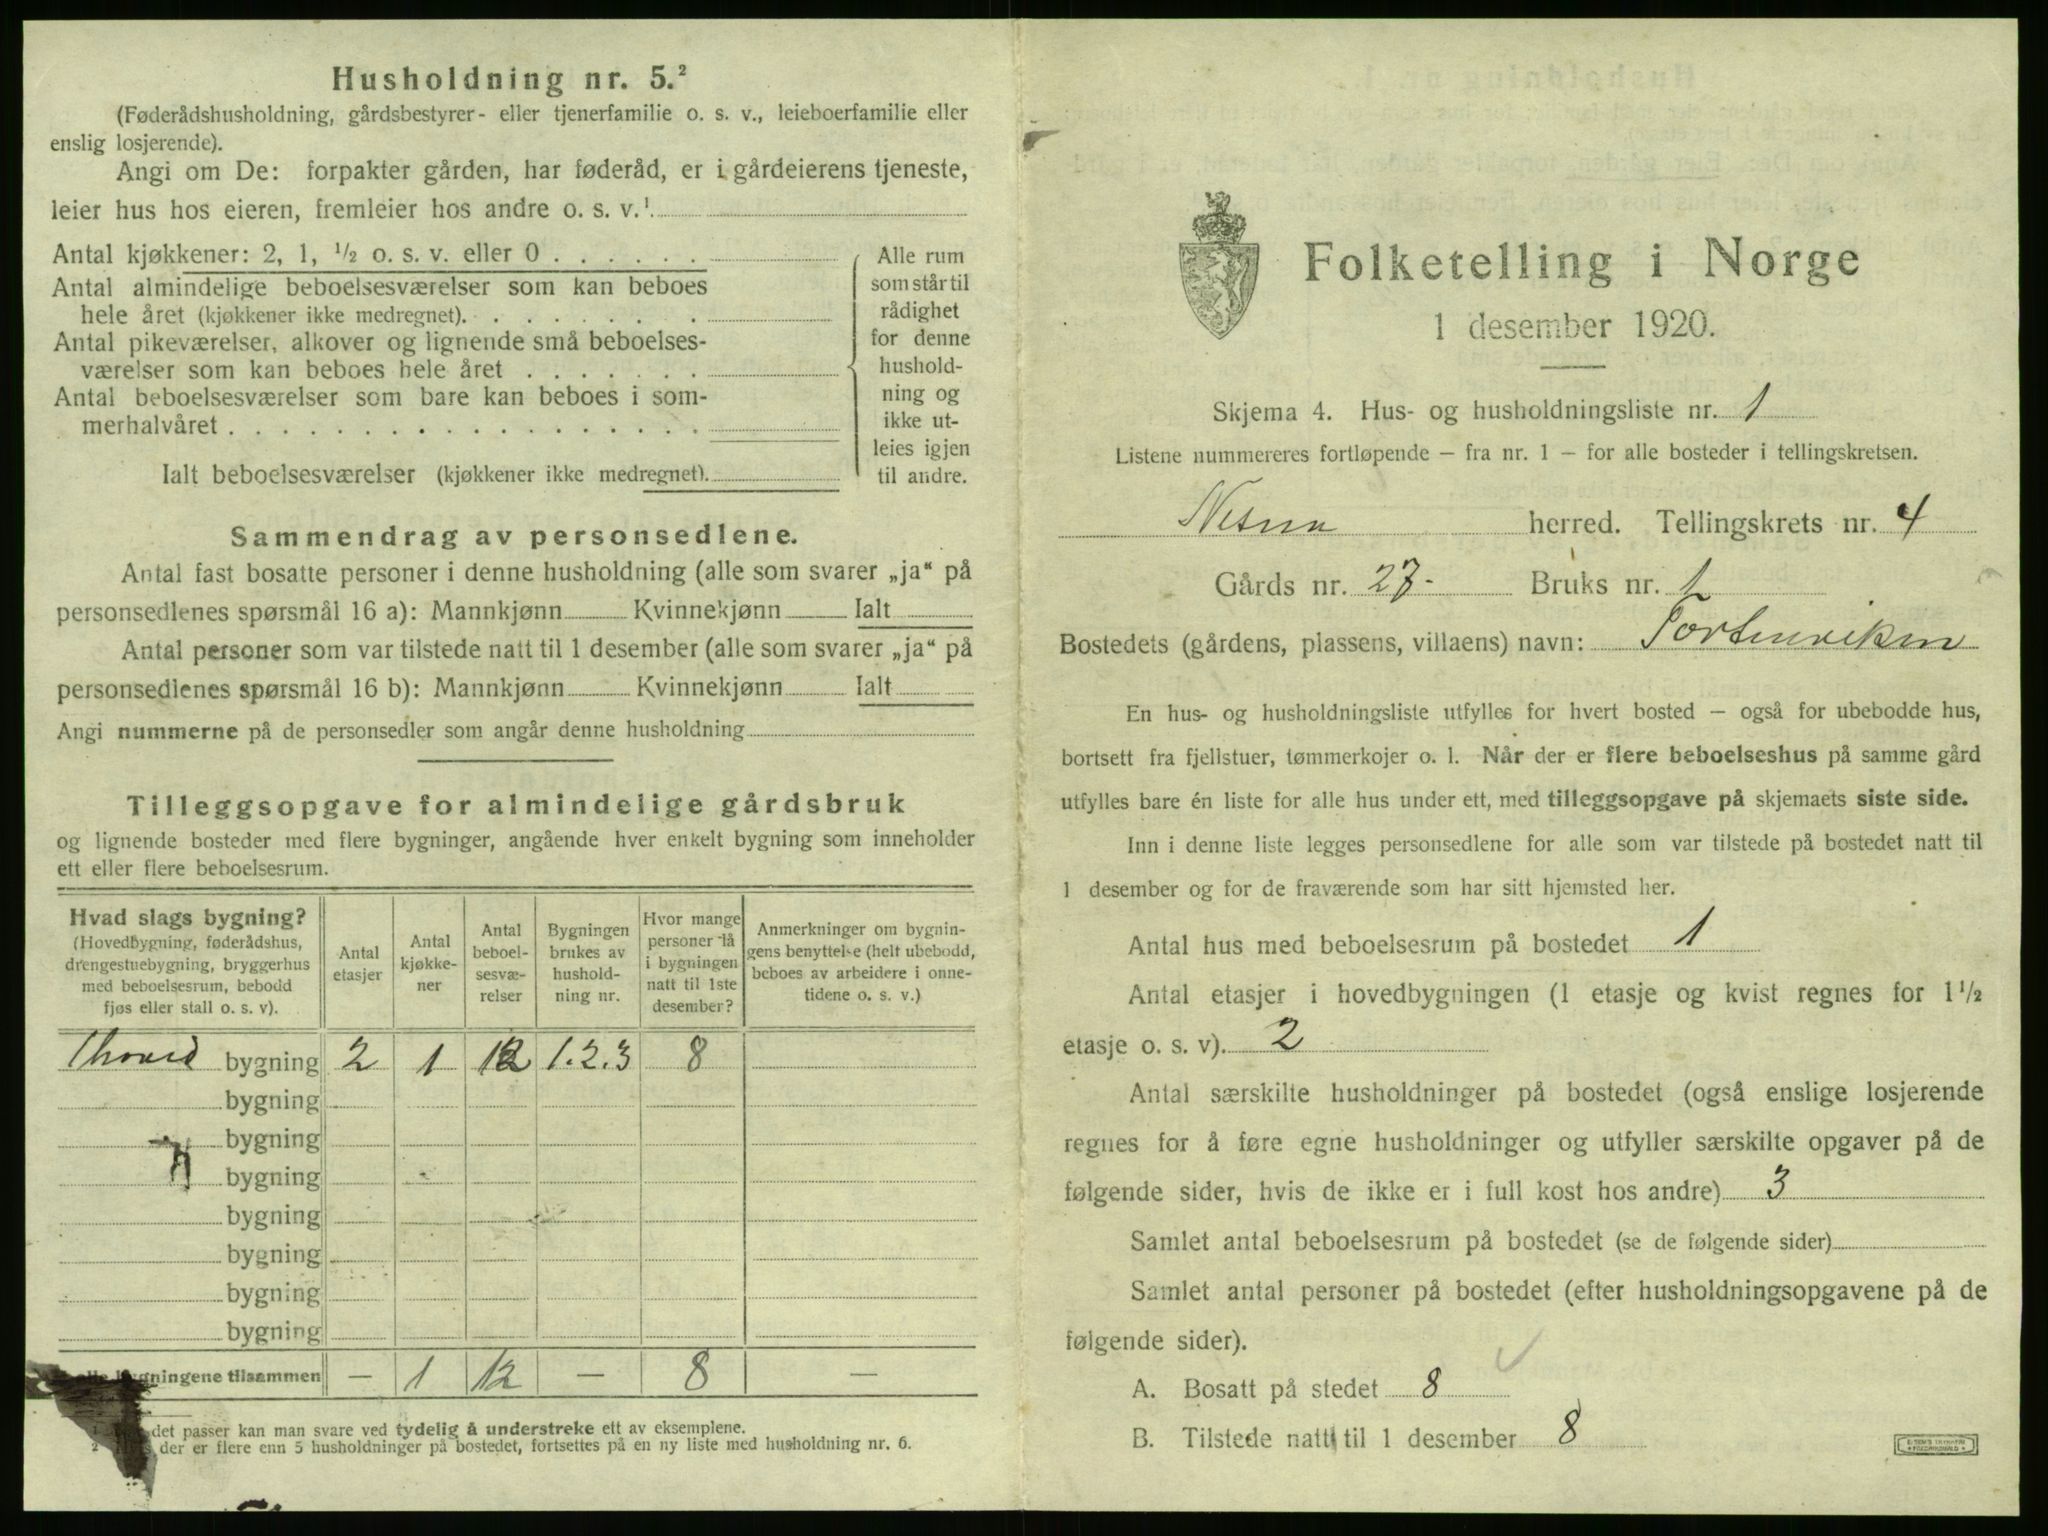 Husholdning nr. 5.²
(Føderådshusholdning, gårdsbestyrer- eller tjenerfamilie o. s. v., leieboerfamilie eller
enslig losjerende).
Angi om De: forpakter gården, har føderåd, er i gårdeierens tjeneste,
leier hus hos eieren, fremleier hos andre o. s. v.¹
Antal kjøkkener: 2, 1, ½ o. s. v. eller 0 . . . . . .
Antal almindelige beboelsesværelser som kan beboes
hele året (kjøkkener ikke medregnet). . . . . . . .
Antal pikeværelser, alkover og lignende små beboelses-
værelser som kan beboes hele året . . . . . . .
Antal beboelsesværelser som bare kan beboes i som-
merhalvåret . . . . . . . . . . . . . . . . . .
Ialt beboelsesværelser (kjøkkener ikke medregnet).
Alle rum
som står til
rådighet
for denne
hushold-
ning og
ikke ut-
leies igjen
til andre.
Sammendrag av personsedlene.
Antal fast bosatte personer i denne husholdning (alle som svarer „ja“ på
personsedlenes spørsmål 16 a): Mannkjønn Kvinnekjønn Ialt
Antal personer som var tilstede natt til 1 desember (alle som svarer „ja“ på
personsedlenes spørsmål 16 b): Mannkjønn Kvinnekjønn Ialt
Angi nummerne på de personsedler som angår denne husholdning
Tilleggsopgave for almindelige gårdsbruk
og lignende bosteder med flere bygninger, angående hver enkelt bygning som inneholder
ett eller flere beboelsesrum.
Hvad slags bygning?
(Hovedbygning, føderådshus,
drengestuebygning, bryggerhus
med beboelsesrum, bebodd
fjøs eller stall o. s. v).
Antal
etasjer
Antal
kjøkke-
ner
Antal
beboel-
sesvæ-
relser
Bygningen
brukes av
hushold-
ning nr.
Hvor mange
personer lå
i bygningen
natt til 1ste
desember?
Anmerkninger om bygnin-
gens benyttelse (helt ubebodd,
beboes av arbeidere i onne-
tidene o. s. v.)
bygning 2 1 12 1.2.3 8
bygning
bygning
bygning
bygning
bygning
bygning
bygning
bygningene tilsammen — 1 12 — 8 —
det passer kan man svare ved tydelig å understreke ett av eksemplene.
² der er flere enn 5 husholdninger på bostedet, fortsettes på en ny liste med husholdning nr. 6.
Folketelling i Norge
1 desember 1920.
Skjema 4. Hus- og husholdningsliste nr. 1
Listene nummereres fortløpende — fra nr. 1 — for alle bosteder i tellingskretsen.
Nesna herred. Tellingskrets nr. 4
Gårds nr. 27- Bruks nr. 1
Bostedets (gårdens, plassens, villaens) navn: Tortenviken
En hus- og husholdningsliste utfylles for hvert bosted — også for ubebodde hus,
bortsett fra fjellstuer, tømmerkojer o. l. Når der er flere beboelseshus på samme gård
utfylles bare én liste for alle hus under ett, med tilleggsopgave på skjemaets siste side.
Inn i denne liste legges personsedlene for alle som var tilstede på bostedet natt til
1 desember og for de fraværende som har sitt hjemsted her.
Antal hus med beboelsesrum på bostedet 1
Antal etasjer i hovedbygningen (1 etasje og kvist regnes for 1½
etasje o. s. v). 2
Antal særskilte husholdninger på bostedet (også enslige losjerende
regnes for å føre egne husholdninger og utfyller særskilte opgaver på de
følgende sider, hvis de ikke er i full kost hos andre) 3
Samlet antal beboelsesrum på bostedet (se de følgende sider)
Samlet antal personer på bostedet (efter husholdningsopgavene på de
følgende sider).
A. Bosatt på stedet 8
B. Tilstede natt til 1 desember 8